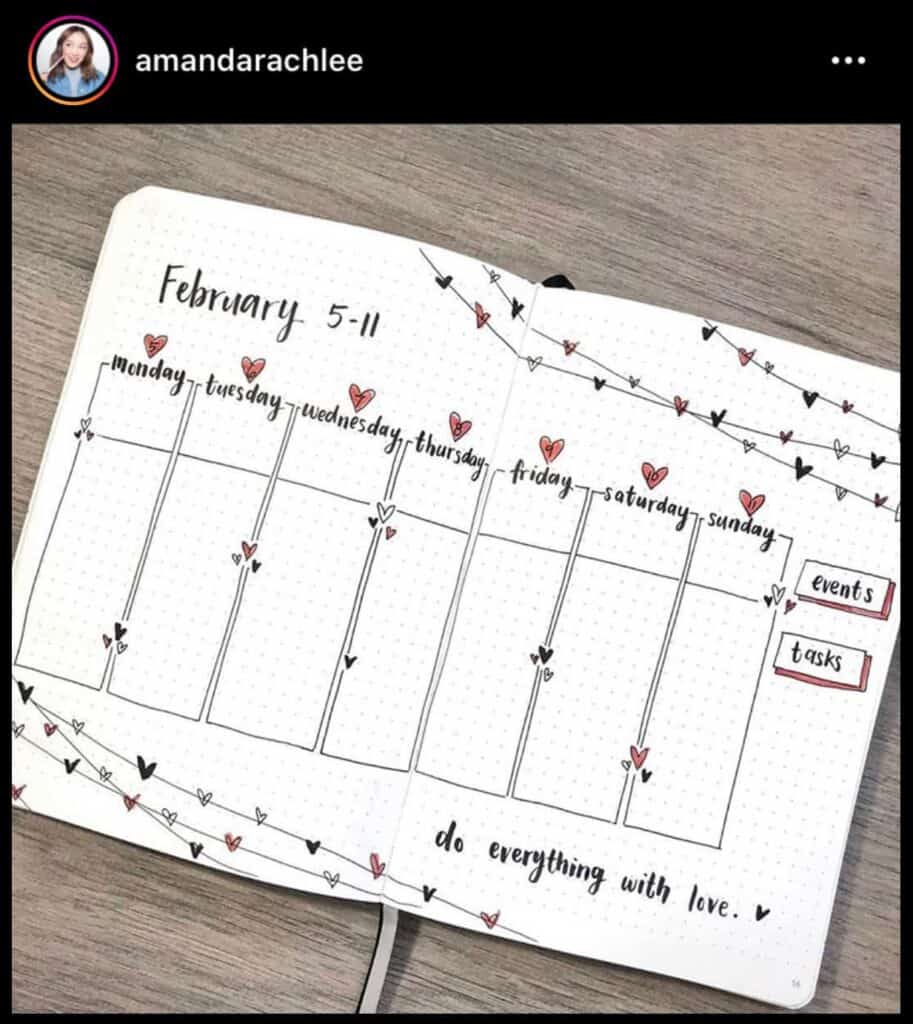 amandarachlee
February 5-11
5 6 7 8 9 10 11
monday tuesday wednesday thursday friday saturday sunday
events
tasks
do everything with love.